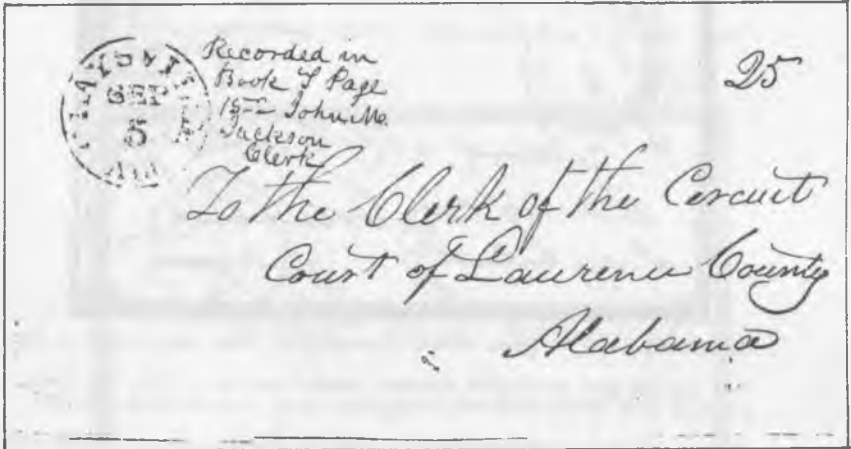 CLAYSVILLE
SEP
5
ALA
Recorded in
Book Page
John M.
Jackson
Clerk
25
To the Clerk of the Cercuit
Court of Laurence County
Alabama